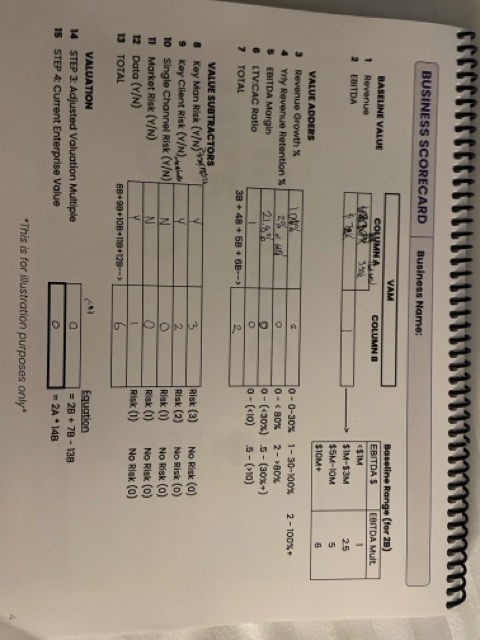 BUSINESS SCORECARD Business Name:
VAM
BASELINE VALUE COLUMN A COLUMN B
1 Revenue
2 EBITDA 1
Baseline Range (for 2B)
EBITDA $ EBITDA Mult.
<$1M 1
$1M-$3M 2.5
$5M-10M 5
$10M+ 6
VALUE ADDERS
3 Revenue Growth % 2 0 - 0-30% 1 - 30-100% 2 - 100%+
4 Yrly Revenue Retention % 0 0 - < 80% 2 - >80%
5 EBITDA Margin 21.8% 0 0 - (<30%) .5 - (30%+)
6 LTV:CAC Ratio 1 0 0 - (<10) .5 - (>10)
7 TOTAL 3B + 4B + 5B + 6B--> 2
VALUE SUBTRACTORS
8 Key Man Risk (Y/N) Y 3 Risk (3) No Risk (0)
9 Key Client Risk (Y/N) Y 2 Risk (2) No Risk (0)
10 Single Channel Risk (Y/N) N 0 Risk (1) No Risk (0)
11 Market Risk (Y/N) N 0 Risk (1) No Risk (0)
12 Data (Y/N) Y 1 Risk (1) No Risk (0)
13 TOTAL 8B+9B+10B+11B+12B--> 6
VALUATION Equation
14 STEP 3: Adjusted Valuation Multiple 0 = 2B + 7B - 13B
15 STEP 4: Current Enterprise Value 0 = 2A * 14B
*This is for illustration purposes only*
4